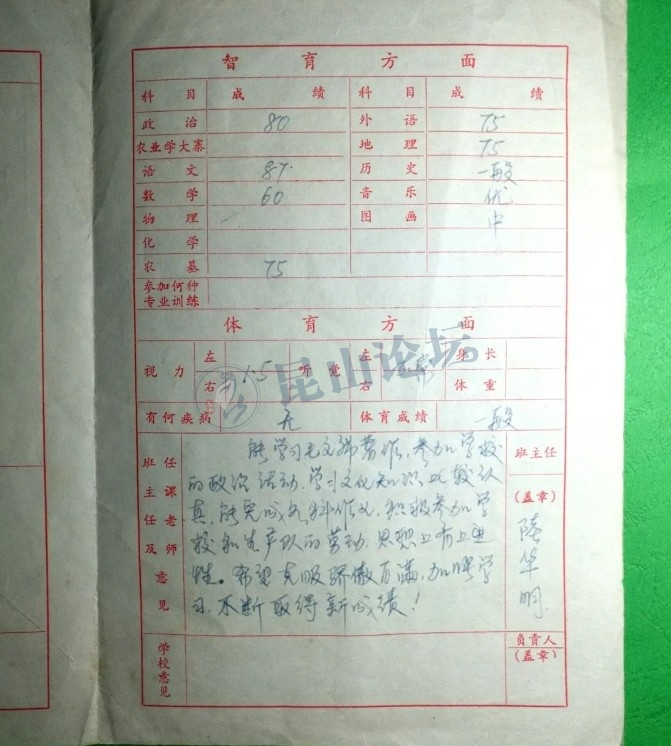 智育方面
科目 成绩 科目 成绩
政治 80 外语 75
农业学大寨 地理 75
语文 87. 历史 一般
数学 60 音乐 优
物理 图画 中
化学
农基 75
参加何种专业训练
体育方面
视力 左 右 1.5 听觉 左 右 身长 体重
昆山论坛
有何疾病 无 体育成绩 一般
班主任及任课老师意见
能学习毛主席著作，参加学校
的政治活动，学习文化知识比较认
真，能完成各科作业，积极参加学
校和生产队的劳动，思想上有上进
性。希望克服骄傲自满，加強学
习，不断取得新成绩！
班主任
(盖章)
陆华明
学校意见
负责人
(盖章)